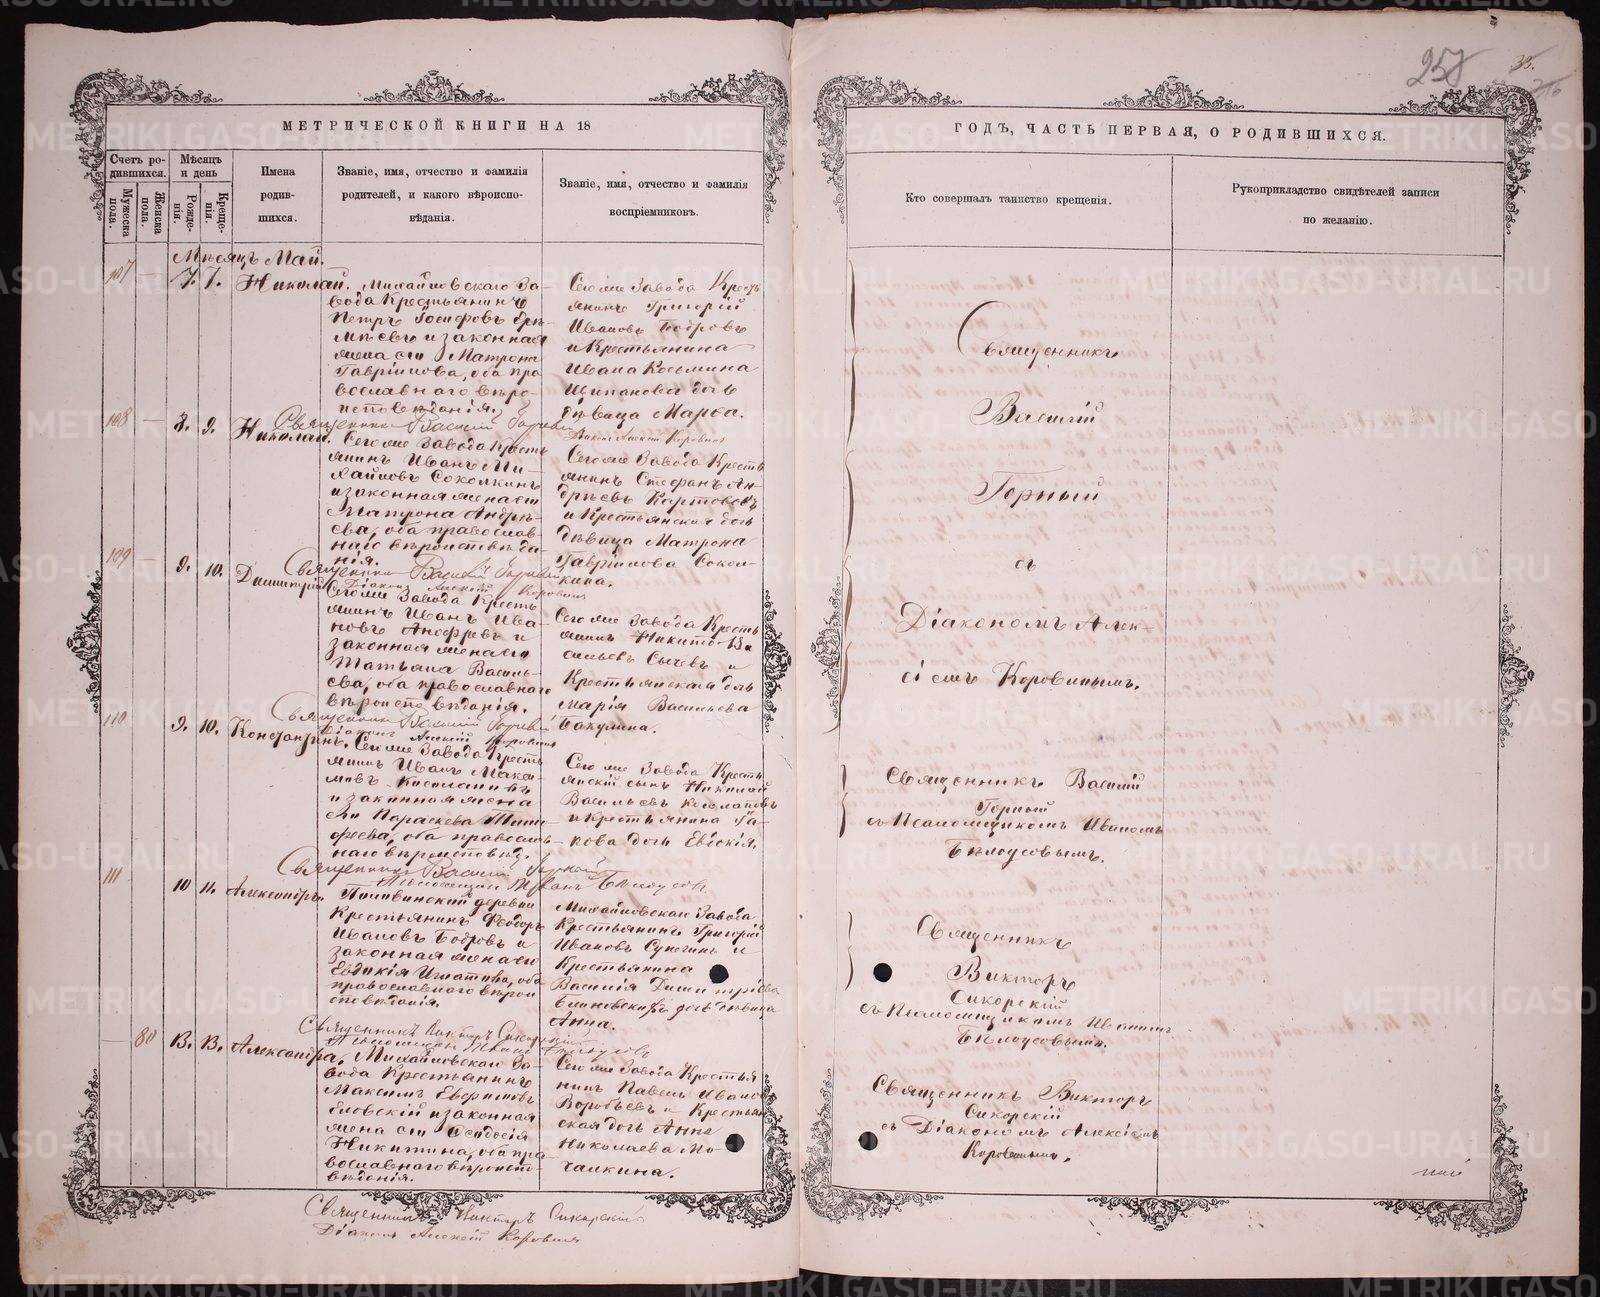 МЕТРИЧЕСКОЙ КНИГИ НА 18
Счетъ родившихся.
Мужеска пола.
Женска пола.
Мѣсяцъ и день
Рожденія.
Крещенія.
Имена родившихся.
Званіе, имя, отчество и фамилія
родителей, и какого вѣроиспо-
вѣданія.
Званіе, имя, отчество и фамилія
воспріемниковъ.
Мѣсяцъ Май.
107 — 7. 7. Николай.
Михайловскаго За-
вода Крестьянинъ
Петръ Іосифовъ
и законная
жена его Матрона
Гавріилова, оба пра
вославнаго вѣро-
исповѣданія.
Сего же Завода Кресть
янинъ Григорій
Ивановъ Бобровъ
и Крестьянина
Ивана Косьмина
дочь
дѣвица Марѳа.
Священникъ Василій Горный
Діаконъ Алексій Коровинъ
108 — 8. 9. Николай.
Сего же Завода Кресть
янинъ Иванъ Ми-
хайловъ Соколкинъ
и законная жена его
Матрона Андрѣ-
ева, оба православ-
наго вѣроисповѣда-
нія.
Сего же Завода Кресть
янинъ Стефанъ Ан-
дрѣевъ
и Крестьянская дочь
дѣвица Матрона
Гавріилова Сокол-
кина.
Священникъ Василій Горный
Діаконъ Алексій Коровинъ
109 — 9. 10. Димитрій
Сего же Завода Кресть
янинъ Иванъ Ива-
новъ и
законная жена его
Татьяна Василь-
ева, оба православнаго
вѣроисповѣданія.
Сего же Завода Кресть
янинъ Никита Ва
сильевъ Сычевъ и
Крестьянская дочь
Марія Васильева
Бакулина.
Священникъ Василій Горный
Діаконъ Алексій Коровинъ
110 9. 10. Константинъ.
Сего же Завода Кресть
янинъ Иванъ Макси
мовъ
и законная жена
его Параскева Тимо-
феева, оба православ-
наго вѣроисповѣд.
Сего же Завода Кресть
янскій сынъ Николай
Васильевъ
и крестьянина Іа-
кова дочь Евдокія.
Священникъ Василій Горный
Псаломщикъ Иванъ Бѣлоусовъ
111 10 11. Александръ.
деревни
Крестьянинъ Феодоръ
Ивановъ Бобровъ и
законная жена его
Евдокія Игнатьева, оба
православнаго вѣрои
сповѣданія.
Михайловскаго Завода
Крестьянинъ Григорій
Ивановъ и
Крестьянина
Василія Димитріева
дочь дѣвица
Анна.
Священникъ Викторъ Сикорскій
Псаломщикъ Иванъ Бѣлоусовъ
— 80 13. 13. Александра.
Михайловскаго За-
вода Крестьянинъ
Максимъ
и законная
жена его Ѳеодосія
Никитина, оба пра-
вославнаго вѣроиспо-
вѣданія.
Сего же Завода Крестья
нинъ Павелъ Ивановъ
Воробьевъ и Крестьян
ская дочь Анна
Николаева Мо-
чалкина.
Священникъ Викторъ Сикорскій
Діаконъ Алексій Коровинъ
ГОДЪ, ЧАСТЬ ПЕРВАЯ, О РОДИВШИХСЯ.
Кто совершалъ таинство крещенія.
Рукоприкладство свидѣтелей записи
по желанію.
Священникъ
Василій
Горный
съ
Діакономъ Алек-
сіемъ Коровинымъ.
Священникъ Василій
Горный
съ Псаломщикомъ Иваномъ
Бѣлоусовымъ.
Священникъ
Викторъ
Сикорскій
съ Псаломщикомъ Иваномъ
Бѣлоусовымъ.
Священникъ Викторъ
Сикорскій
съ Діакономъ Алексіемъ
Коровинымъ.
METRIKI.GASO-URAL.RU